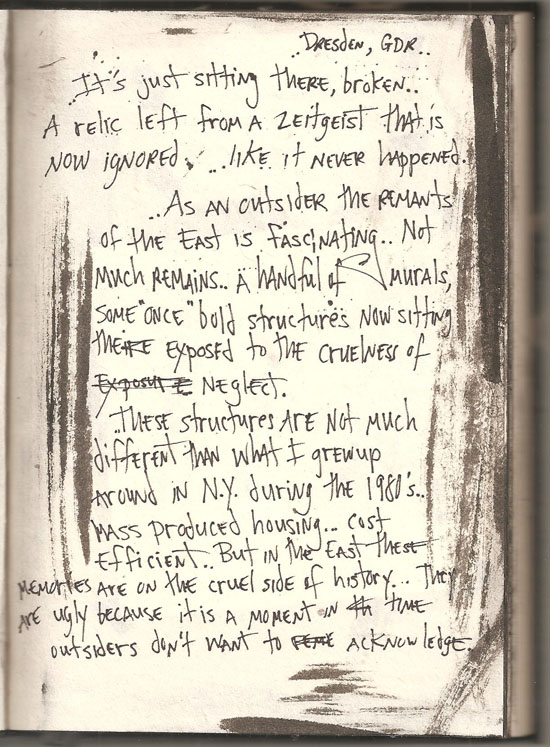 ..Dresden, GDR..
..It's just sitting there, broken..
A relic left from a zeitgeist that is
now ignored. ...like it never happened.
..As an outsider the remants
of the East is fascinating.. Not
much remains.. a handful of murals,
some "once" bold structures now sitting
there exposed to the cruelness of
Exposure Neglect.
..These structures are not much
different than what I grewup
around in N.Y. during the 1980's..
mass produced housing... cost
efficient.. But in the East these
memories are on the cruel side of history... They
are ugly because it is a moment in th time
outsiders don't want to acknowledge.